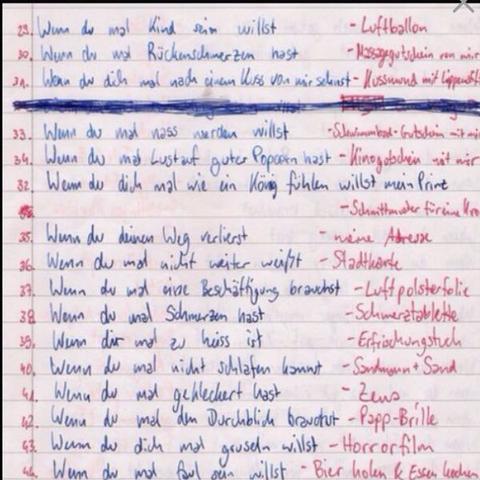 29. Wenn du mal Kind sein willst - Luftballon
30. Wenn du mal Rückenschmerzen hast - Massagegutschein von mir
31. Wenn du dich mal nach einem Kuss von mir sehnst - Kussmund mit
33. Wenn du mal nass werden willst - Schwimmbad-Gutschein mit
34. Wenn du mal Lust auf guter Popcorn hast - Kinogutschein mit mir
32. Wenn du dich mal wie ein König fühlen willst mein Prinz
- Schnittmuster für eine Kro
35. Wenn du deinen Weg verlierst - meine Adresse
36. Wenn du mal nicht weiter weißt - Stadtkarte
37. Wenn du mal eine Beschäftigung brauchst - Luftpolsterfolie
38. Wenn du mal Schmerzen hast - Schmerztablette
39. Wenn dir mal zu heiss ist - Erfrischungstuch
40. Wenn du mal nicht schlafen kannst - Sandmann + Sand
41. Wenn du mal gekleckert hast - Zewa
42. Wenn du mal den Durchblick brauchst - Papp-Brille
43. Wenn du dich mal gruseln willst - Horrorfilm
44. Wenn du mal faul sein willst - Bier holen & Essen kochen